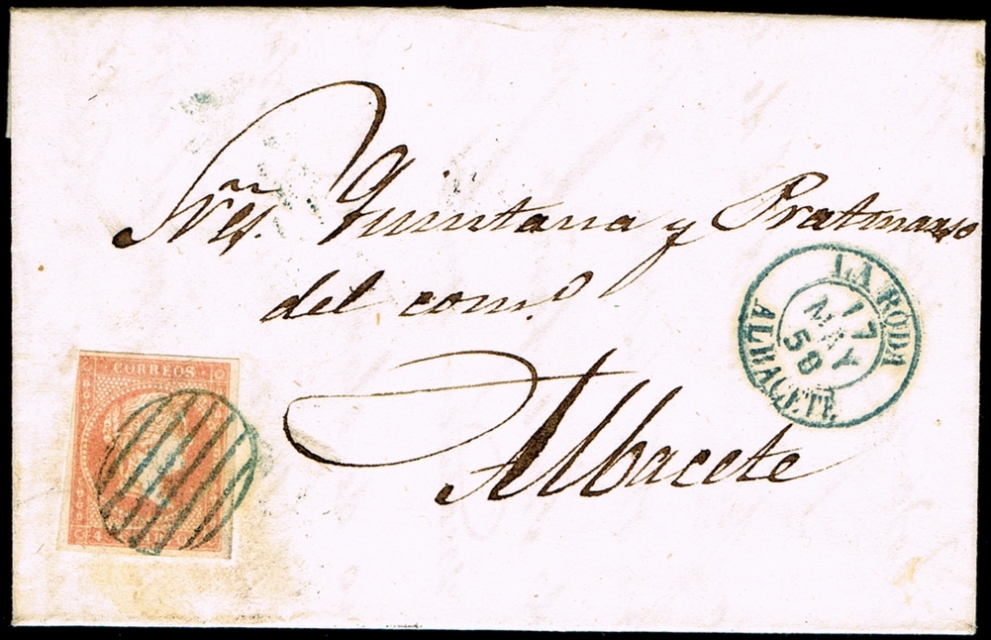 Sres. Quintana y Pratmarso
del como
Albacete
LA RODA
17
MAY
58
ALBACETE.
CORREOS
4